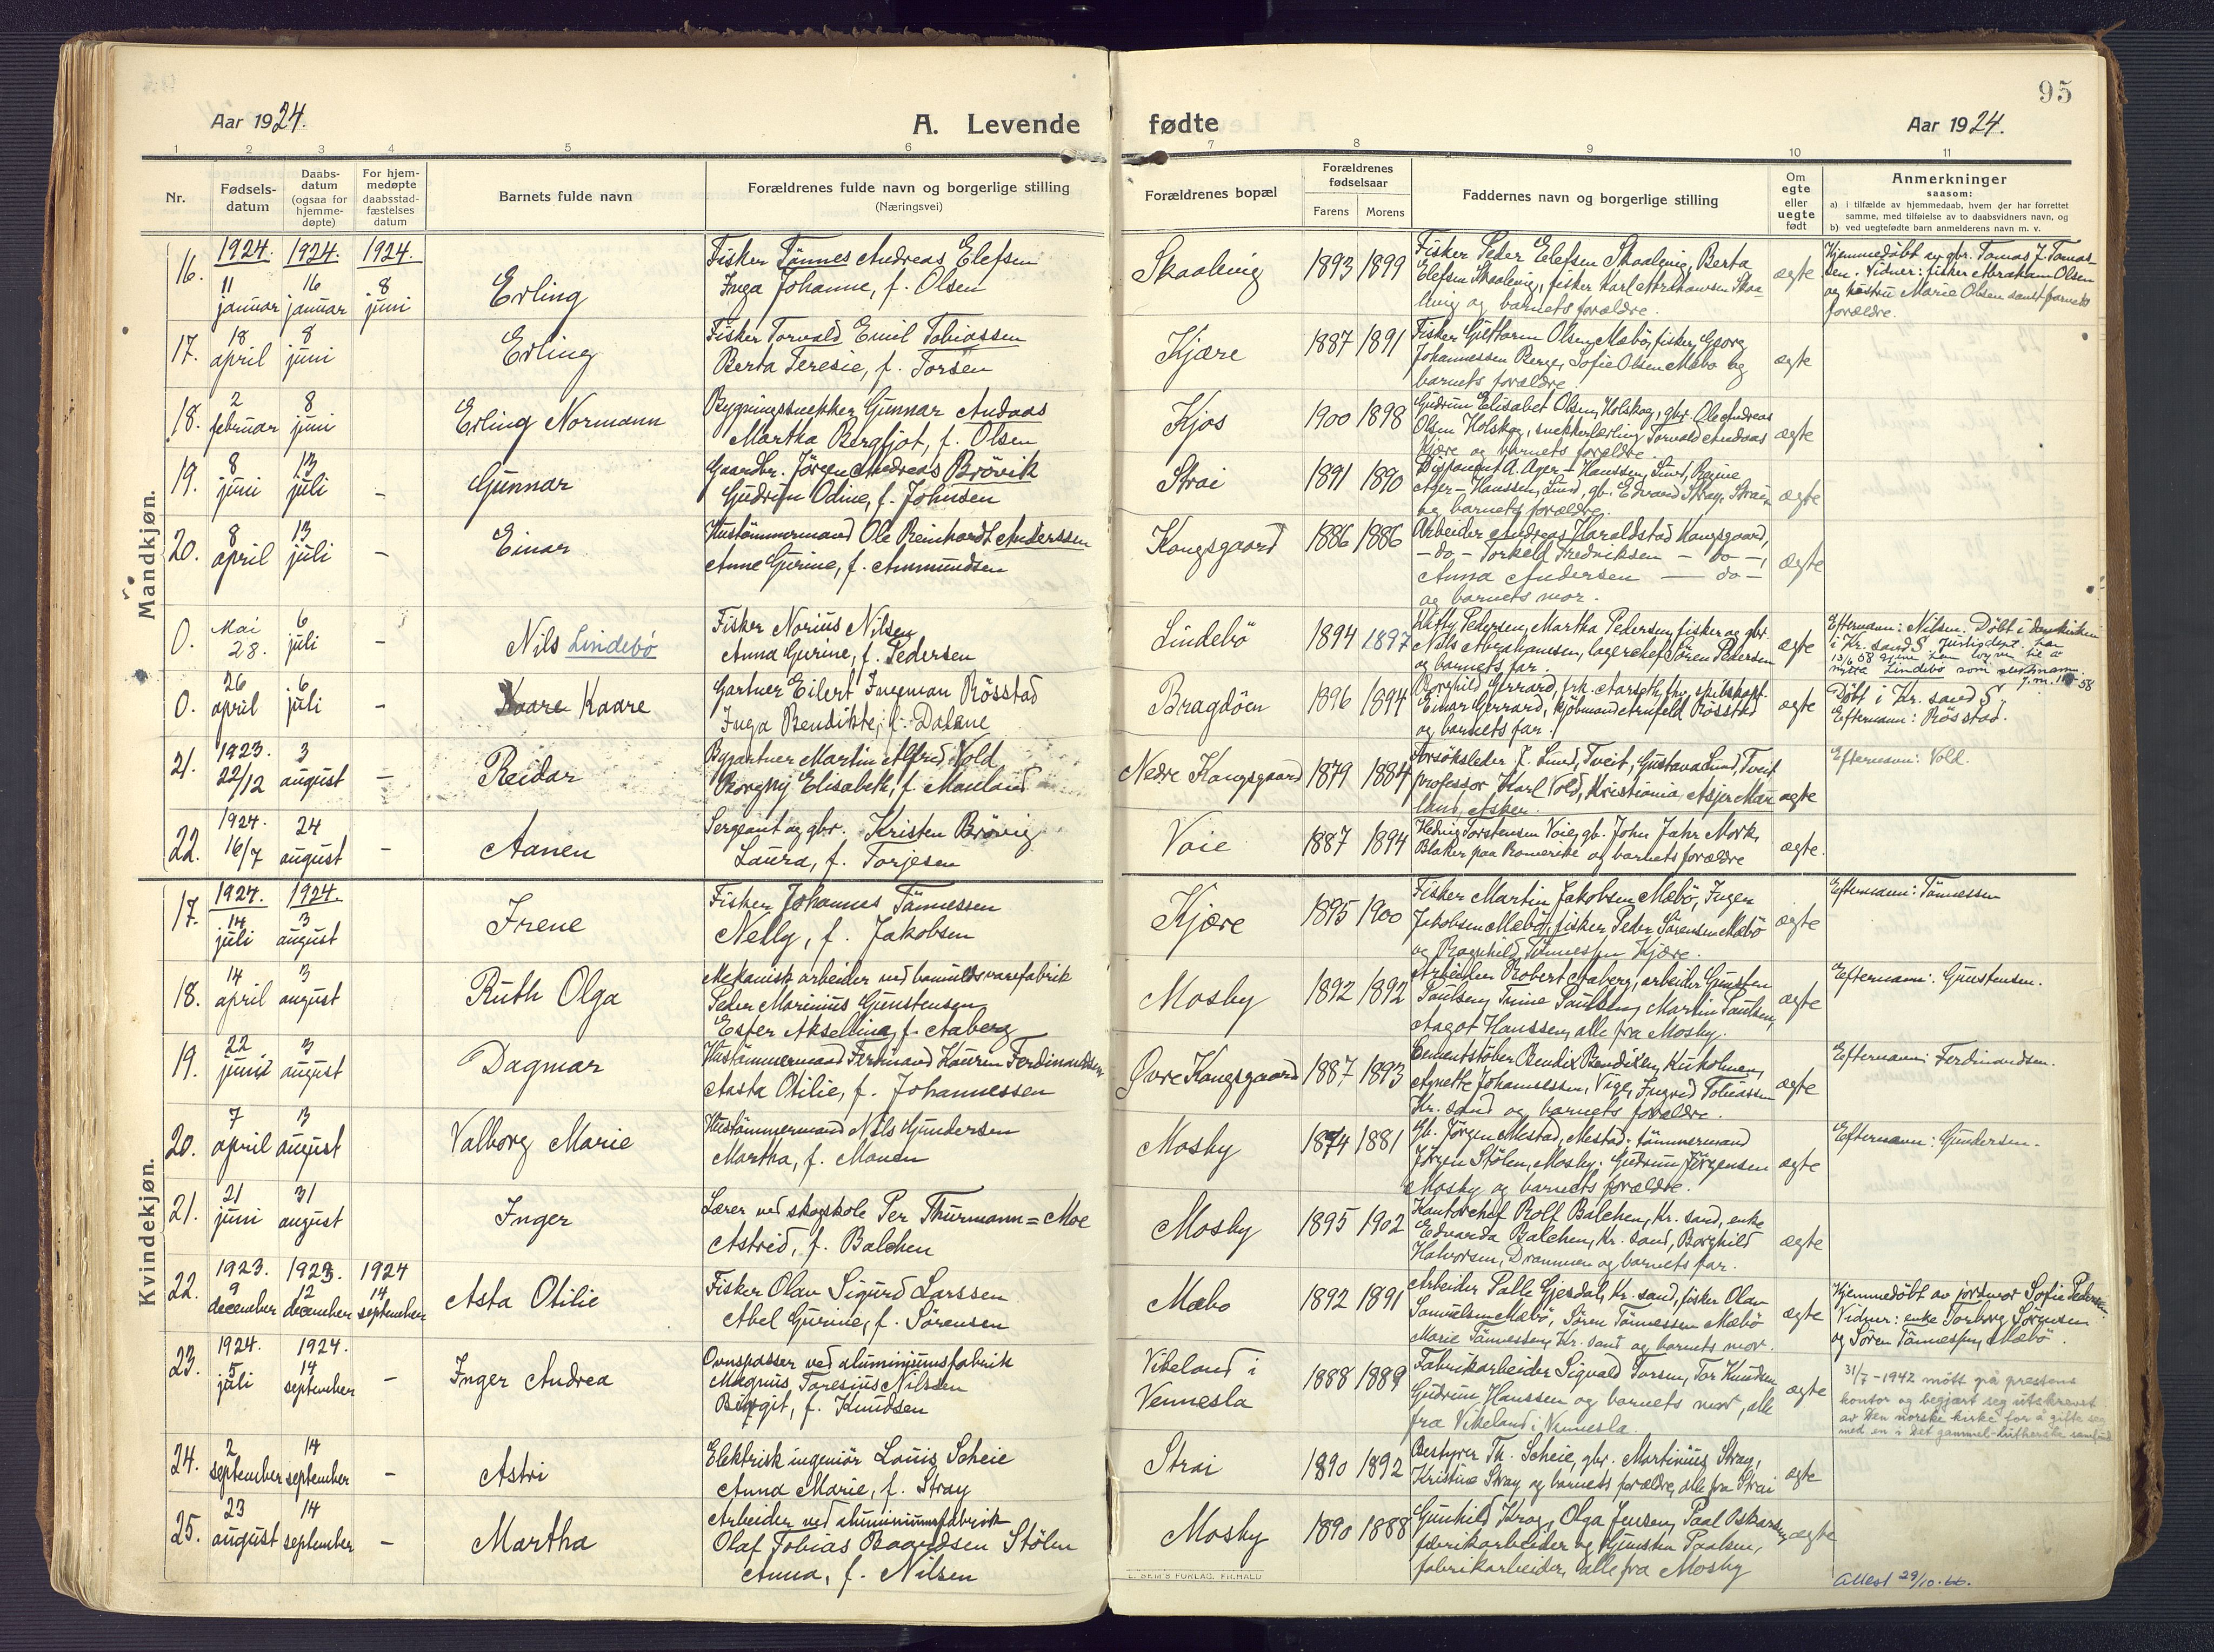 95
Aar 1924.
A. Levende fødte
Aar 1924.
1 2 3 4 5 6 7 8 9 10 11
Nr.
Fødsels-
datum
Daabs-
datum
(ogsaa for
hjemme-
døpte)
For hjem-
medøpte
daabsstad-
fæstelses
datum
Barnets fulde navn
Forældrenes fulde navn og borgerlige stilling
(Næringsvei)
Forældrenes bopæl
Forældrenes
fødselsaar
Farens Morens
Faddernes navn og borgerlige stilling
Om
egte
eller
uegte
født
Anmerkninger
saasom:
a) i tilfælde av hjemmedaab, hvem der har forrettet
samme, med tilføielse av to daabsvidners navn, og
b) ved uegtefødte barn anmelderens navn m. v.
Mandkjøn.
16.
1924. 1924. 1924.
11 16 8
januar januar juni
Erling
Fisker Tönnes Andreas Elefsen
Inga Johanne, f. Olsen
Skaalevig
1893 1899
Fisker Peder Elefsen Skaalevig, Berta
Elefsen Skaalevig, fisker Karl Abrahamsen Skaa-
levig og barnets forældre.
ægte
Hjemmedöbt av gbr. Tomas J. Tomas-
sen. Vidner: fisker Abraham Olsen
og hustru Marie Olsen samt barnets
forældre.
17.
18 8
april juni
Erling
Fisker Torvald Emil Tobiassen
Berta Teresie, f. Torsen
Kjære
1887 1891
Fisker Guttorm Olsen Mæbö, fisker Georg
Johannessen Berge, Sofie Olsen Mæbö og
barnets forældre.
ægte
18.
2 8
februar juni
Erling Normann
Bygningssnekker Gunnar Andaas
Martha Bergljot, f. Olsen
Kjos
1900 1898
Gudrun Elisabet Olsen, Holskog, gbr. Ole Andreas
Olsen Holskog, snekkerlærling Torvald Andaas
Kjære og barnets forældre.
ægte
19.
8 13
juni juli -
Gunnar
Gaardbr. Jörgen Andreas Brövik
Gudrun Odine, f. Johnsen
Strai
1891 1890
Disponent A. Ager-Hanssen, Lund, Regine
Ager-Hanssen, Lund, gb. Edvard Stray, Strai
og barnets forældre.
ægte
20.
8 13
april juli -
Einar
Hustömmermand Ole Reinhardt Anderssen
Anne Gurine, f. Ammundsen
Kongsgaard
1886 1886
Arbeider Andreas Haraldstad Kongsgaard,
- do - Torkeld Fredriksen - do -,
Anna Andersen - do -
og barnets mor.
ægte
0.
Mai 6
28. juli -
Nils Lindebö
Fisker Norius Nilsen
Anna Gurine, f. Pedersen
Lindebö
1894 1897
Pedersen, Martha Pedersen, fisker og gbr.
Nils Abrahamsen, lagerchef Sören Pedersen
og barnets far.
ægte
Efternavn: Nilsen. Döbt i domkirken
i Kr. sand S. Justisdept. har
13/6 58 lov til å
nytte Lindebø som slektsnamn
58
0.
26 6
april juli -
Kaare
Gartner Eilert Ingeman Rösstad
Inga Bendikte, f. Dalane
Bragdöen
1896 1894
Borghild Gerrard, frk. Aarseth, fhv. skibskapt.
Einar Gerrard, kjöbmand Rösstad
og barnets far.
ægte
Döbt i Kr. sand S.
Efternavn: Rösstad.
21.
1923. 3
22/12 august -
Reidar
Bygartner Martin Alfred Vold
Borgny Elisabeth, f. Mauland
Nedre Kongsgaard
1879 1884
Forsöksleder J. Lund, Tveit, Gustava Lund, Tveit
professor Karl Vold, Kristiania, Asjer Mau-
land, Asker.
ægte
Efternavn: Vold.
22.
1924. 24
16/7 august -
Aanen
Sergeant og gbr. Kristen Brövig
Laura, f. Torjesen
Voie
1887 1894
Hedvig Torstensen Voie, gb. John Jahr Mork,
Blaker paa Romerike og barnets forældre
ægte.
Kvindekjøn.
17.
1924. 1924.
14 3
juli august
Irene
Fisker Johannes Tönnessen
Nelly, f. Jakobsen
Kjære
1895 1900
Fisker Martin Jakobsen Mæbö, Inger
Jakobsen Mæbö, fisker Peder Sörensen Mæbö
og Ragnhild Tönnessen Kjære.
ægte
Efternavn: Tönnessen
18.
14 3
april august
Ruth Olga
Mekanisk arbeider ved bomuldsvarefabrik
Peder Marinius Gunstensen
Ester Akselline, f. Aaberg
Mosby
1892 1892
Arbeider Robert Aaberg, arbeider Gunsten
Paulsen, Trine Paulsen, Martin Paulsen,
Aagot Hanssen, alle fra Mosby.
ægte
Efternavn: Gunstensen.
19.
22 3
juni august
Dagmar
Hustömmermand Ferdinand Kaurin Ferdinandsen
Aasta Otilie, f. Johannessen
Øvre Kongsgaard
1887 1893
Cementstöber Bendix Bendixen, Kuholmen,
Agnette Johannessen, Vige, Ingrid Tobiassen
Kr. sand og barnets forældre.
ægte
Efternavn: Ferdinandsen.
20.
7 3
april august
Valborg Marie
Hustömmermand Nils Gundersen
Martha, f. Monen
Mosby
1874 1881
Gb. Jörgen Mestad, Mestad; tömmermand
Jörgen Stölen, Mosby; Gudrun Jörgensen
Mosby og barnets forældre.
ægte
Efternavn: Gundersen.
21.
21 31
juni august
Inger
Lærer ved skogskole Per Thurmann=Moe
Astrid, f. Balchen
Mosby
1895 1902
Kontorchef Rolf Balchen, Kr. sand, enke
Edvarda Balchen, Kr. sand, Borghild
Halvorsen, Drammen og barnets far.
ægte
22.
1923. 1923. 1924
9 12 14
december december september
Asta Otilie
Fisker Olav Sigurd Larssen
Abel Gurine, f. Sörensen
Mæbö
1892 1891
Arbeider Palle Gjesdal, Kr. sand, fisker Olav
Samuelsen Mæbö, Sören Tönnessen Mæbö
Marie Tönnessen, Kr. sand og barnets mor.
ægte
Hjemmedöbt av jordmor Sofie Pedersen
Vidner: enke Torborg Sörensen
og Sören Tönnessen, Mæbö.
23.
1924. 1924.
5 14
juli september -
Inger Andrea
Ovnspasser ved aluminiumsfabrik
Magnus Taresius Nilssen
Birgit, f. Knudsen
Vikeland i
Vennesla
1888 1889
Fabrikarbeider Sigvald Torsen, Tor Knudsen
Gudrun Hanssen og barnets mor, alle
fra Vikeland i Vennesla.
ægte
31/7-1942 møtt på prestens
kontor og begjært seg utskrevet
av Den norske kirke for å gifte seg
med en i Det gammel-lutherske samfund
24.
2 14
september september -
Astri
Elektrisk ingeniör Louis Scheie
Anna Marie, f. Stray
Strai
1890 1892
Bestyrer Th. Scheie, gbr. Martinius Stray,
Kristine Stray og barnets forældre, alle fra Strai
ægte
25.
23 14
august september -
Martha
Arbeider ved aluminiumsfabrik
Olaf Tobias Baardsen Stölen
Anna, f. Nilsen
Mosby
1890 1888
Gunhild Krog, Olga Jensen, Paal Oskarsen
fabrikarbeider og Gunsten Paalsen,
fabrikarbeider, alle fra Mosby
ægte
Attest 29/10-66.